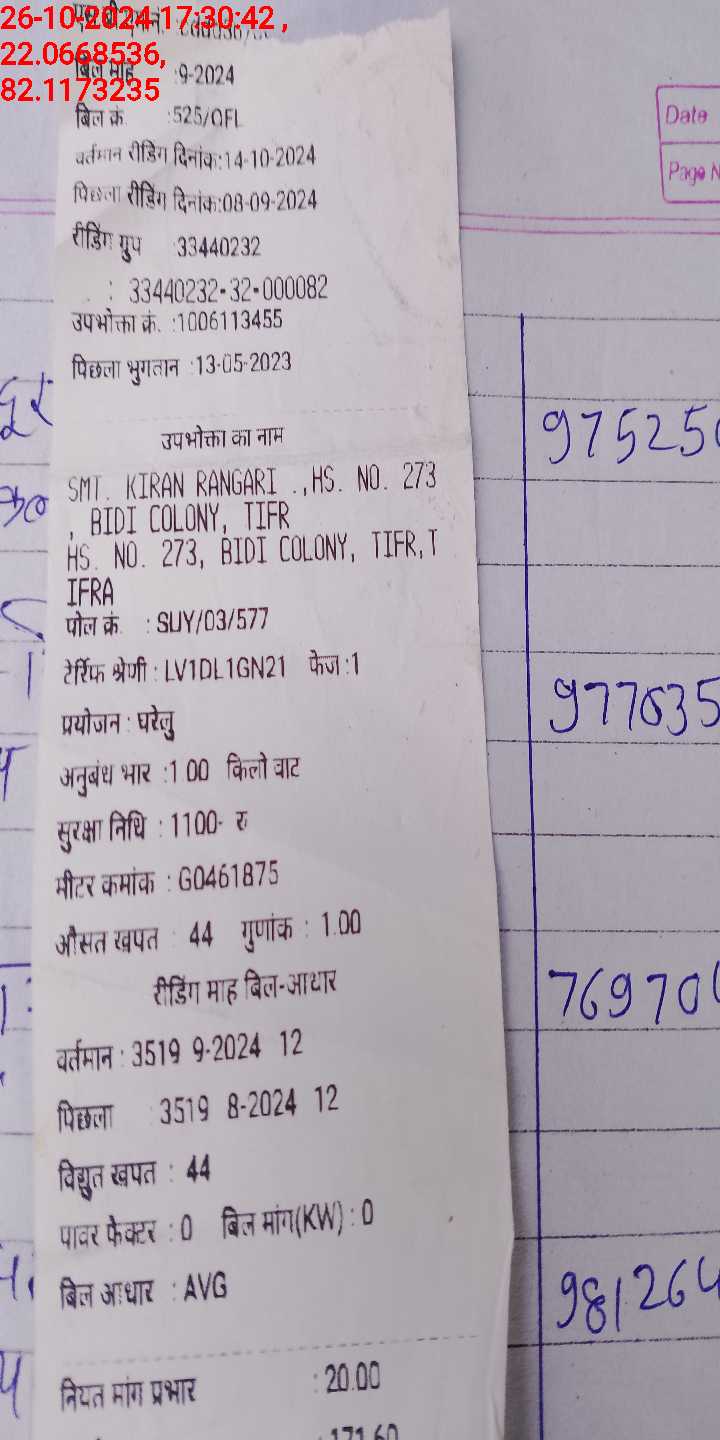 26-10-2024 17:30:42 ,
22.0668536,
82.1173235
बिल माह :9-2024
बिल क्रं :525/OFL
वर्तमान रीडिंग दिनांक:14-10-2024
पिछला रीडिंग दिनांक:08-09-2024
रीडिंग ग्रुप :33440232
: 33440232-32-000082
उपभोक्ता क्रं. :1006113455
पिछला भुगतान :13-05-2023
उपभोक्ता का नाम
SMT. KIRAN RANGARI .,HS. NO. 273
, BIDI COLONY, TIFR
HS. NO. 273, BIDI COLONY, TIFR,T
IFRA
पोल क्रं : SUY/03/577
टेर्रिफ श्रेणी : LV1DL1GN21 फेज :1
प्रयोजन : घरेलु
अनुबंध भार :1.00 किलो वाट
सुरक्षा निधि : 1100- रु
मीटर कमांक : G0461875
औसत खपत : 44 गुणांक : 1.00
रीडिंग माह बिल-आधार
वर्तमान : 3519 9-2024 12
पिछला 3519 8-2024 12
विद्युत खपत : 44
पावर फेक्टर : 0 बिल मांग(KW) : 0
बिल आधार : AVG
नियत मांग प्रभार : 20.00
: 171.60
Date
Page N
97525
977635
76970
981264